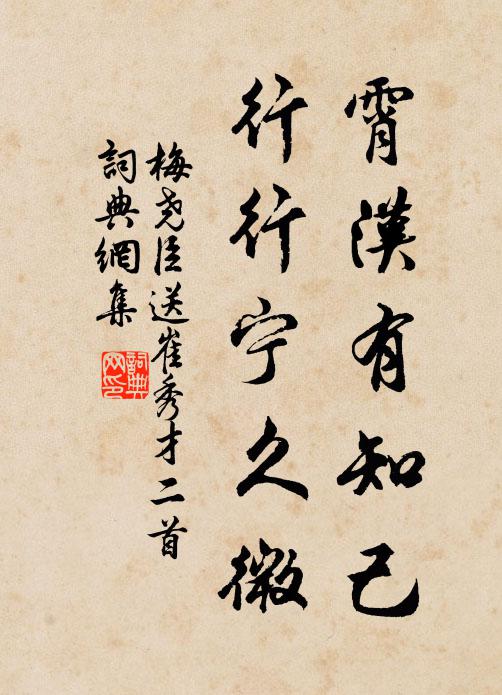 霄漢有知己
行行宁久微
梅尧臣送崔秀才二首
詞典網集
詞典网印